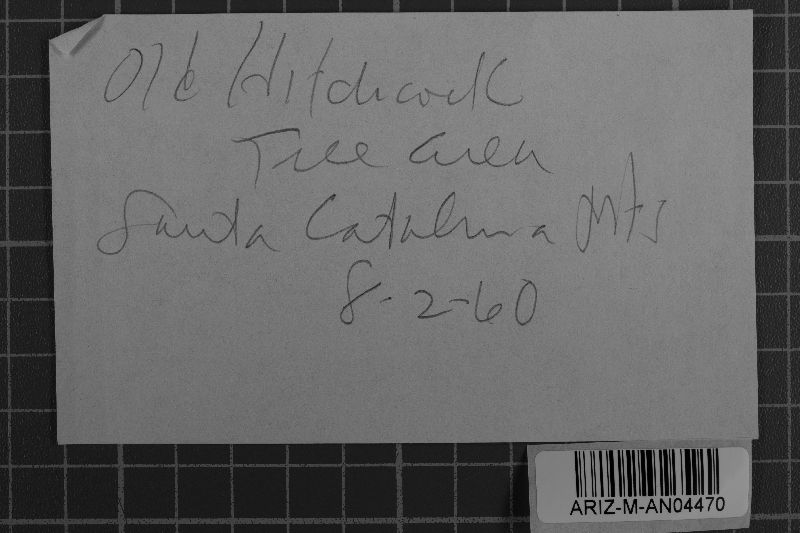 Old Hitchcock
Tree area
Santa Catalina Mts
8-2-60
ARIZ-M-AN04470